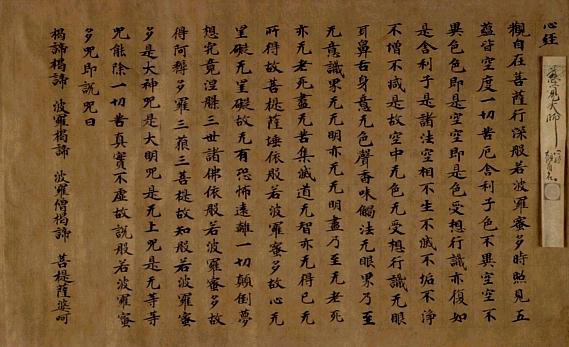 心經
慈覚大師
觀自在菩薩行深般若波羅蜜多時照見五
蘊皆空度一切苦厄舍利子色不異空空不
異色色即是空空即是色受想行識亦復如
是舍利子是諸法空相不生不滅不垢不淨
不增不減是故空中无色无受想行識无眼
耳鼻舌身意无色聲香味觸法无眼界乃至
无意識界无无明亦无无明盡乃至无老死
亦无老死盡无苦集滅道无智亦无得已无
所得故菩提薩埵依般若波羅蜜多故心无
罣礙无罣礙故无有恐怖遠離一切顛倒夢
想究竟涅槃三世諸佛依般若波羅蜜多故
得阿耨多羅三藐三菩提故知般若波羅蜜
多是大神咒是大明咒是无上咒是无等等
咒能除一切苦真實不虛故說般若波羅蜜
多咒即說咒曰
揭諦揭諦 波羅揭諦 波羅僧揭諦 菩提薩婆呵